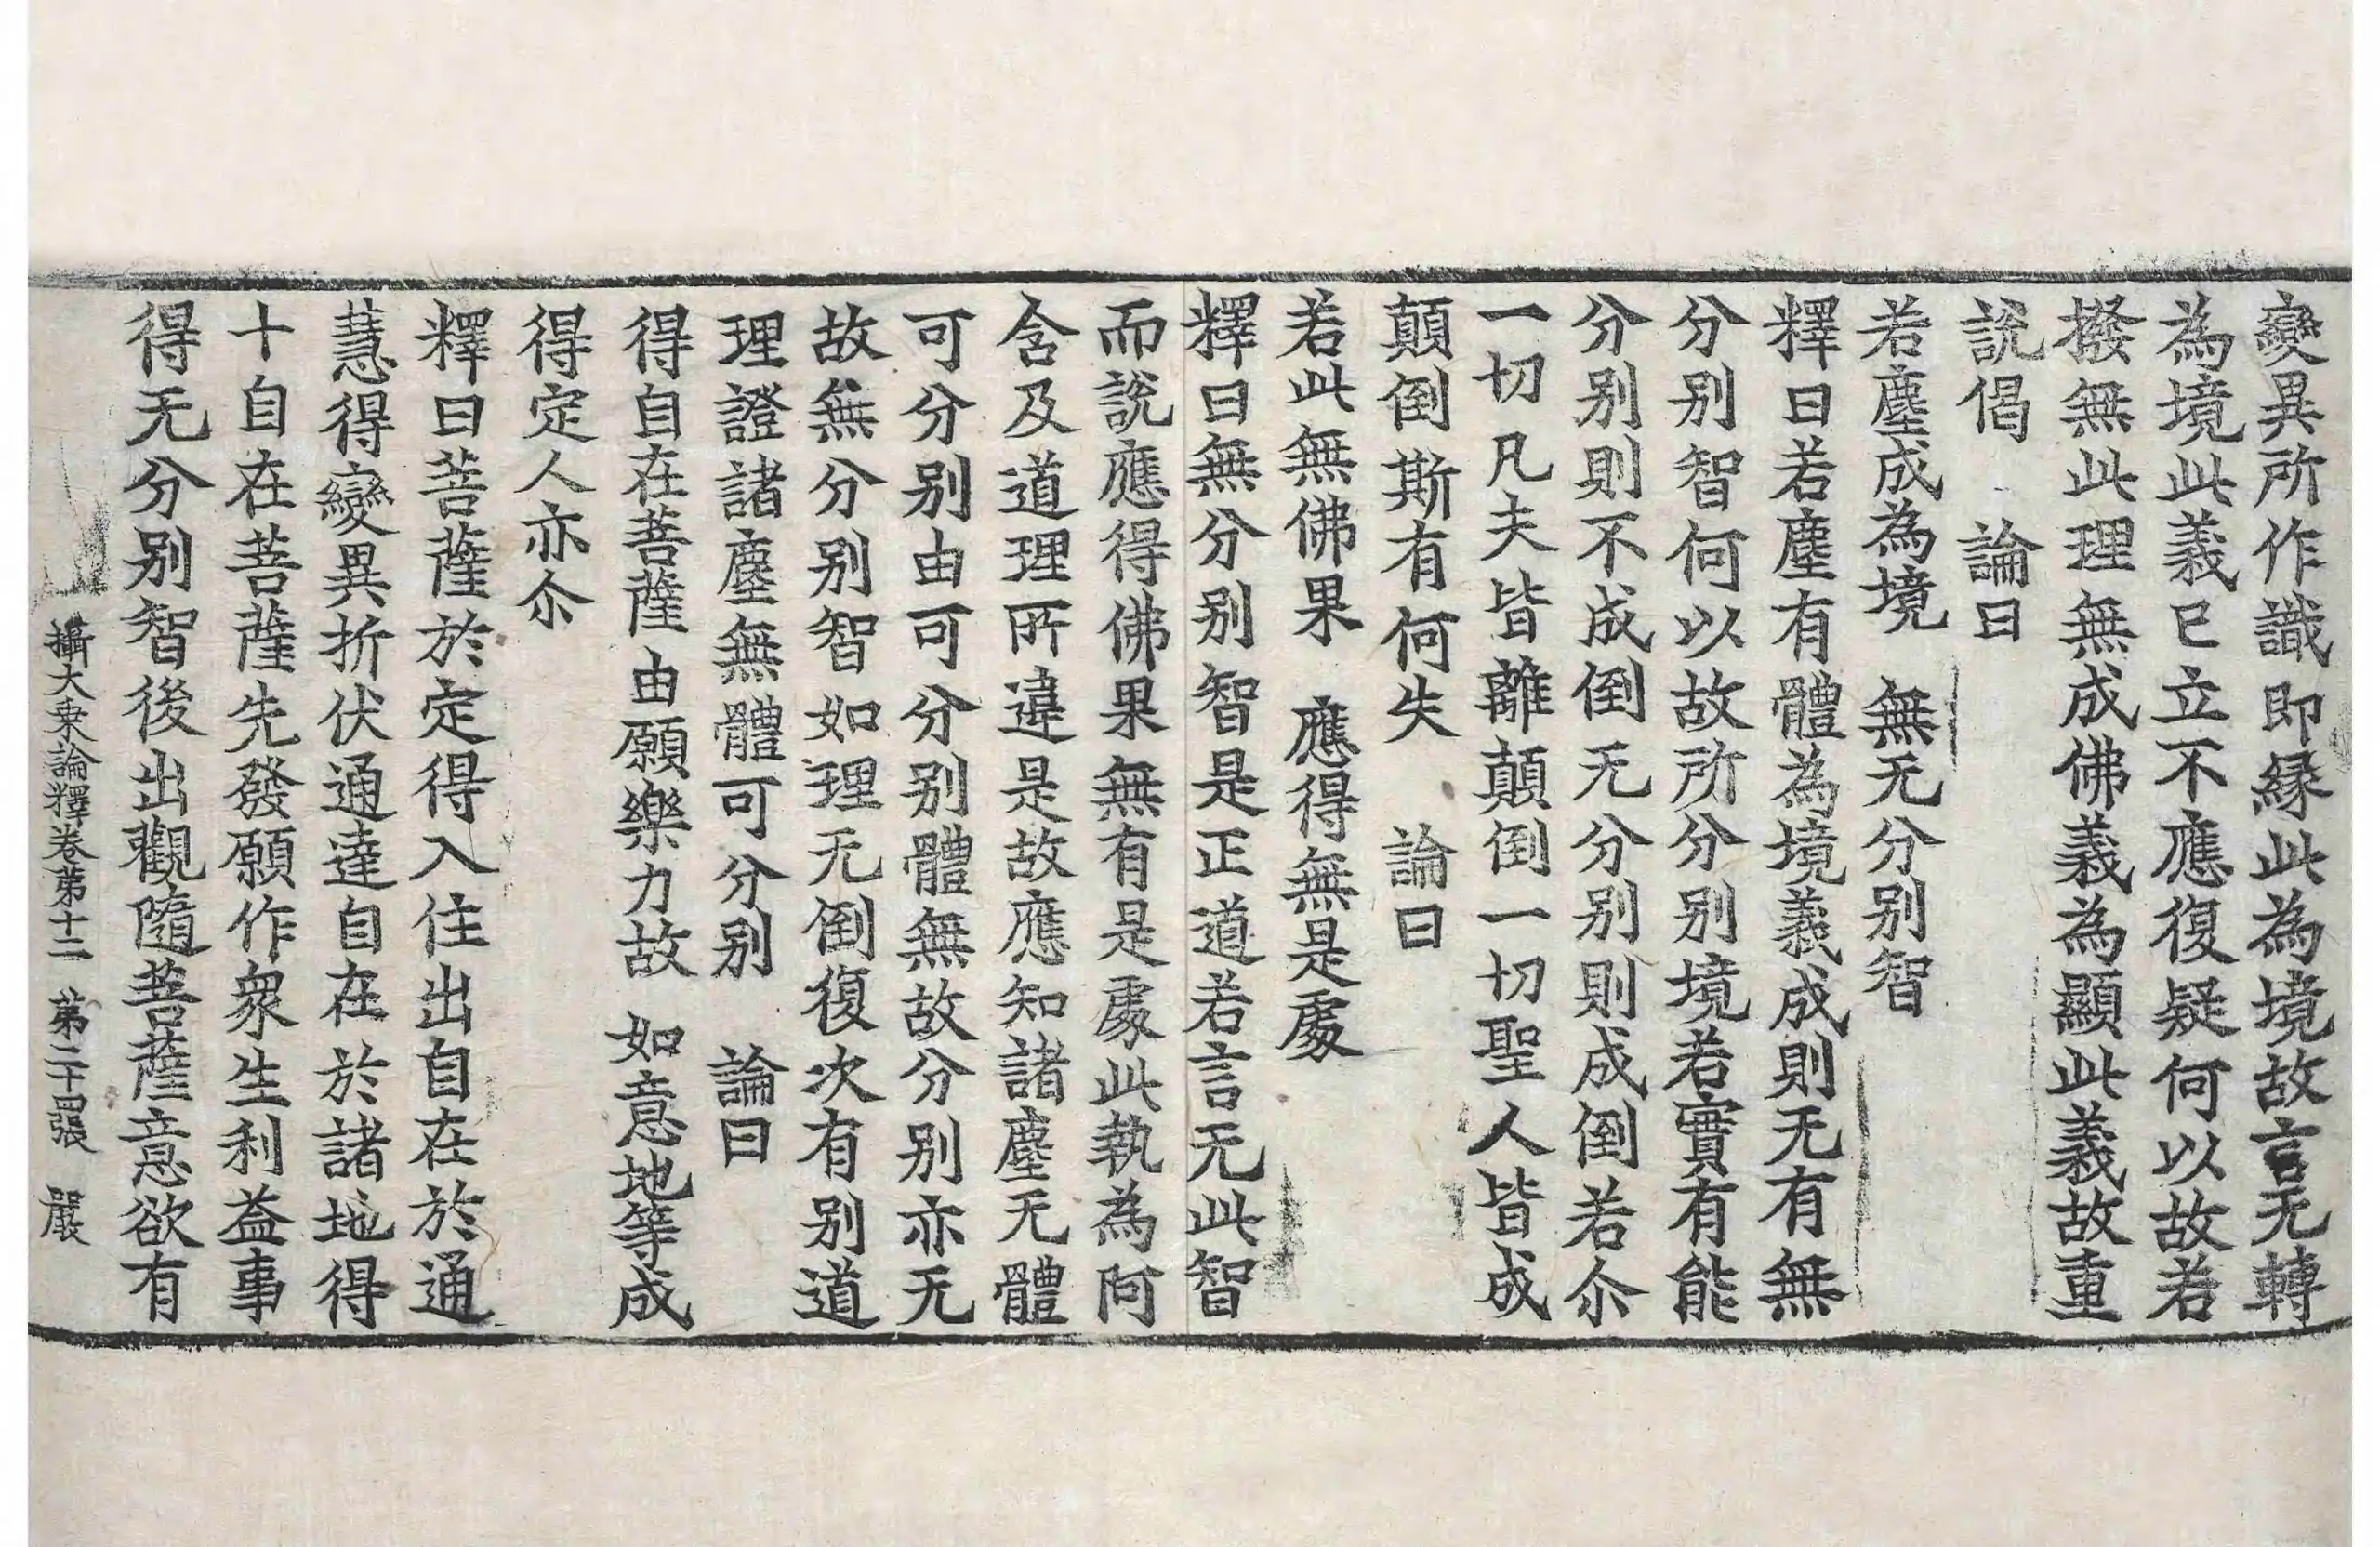 變異所作識即緣此為境故言无轉
為境此義已立不應復疑何以故若
撥無此理無成佛義為顯此義故重
說偈　論曰
若塵成為境　無无分別智
釋曰若塵有體為境義成則无有無
分別智何以故所分別境若實有能
分別則不成倒无分別則成倒若尒
一切凡夫皆離顛倒一切聖人皆成
顛倒斯有何失　論曰
若此無佛果　應得無是處
釋曰無分別智是正道若言无此智
而說應得佛果無有是處此執為阿
含及道理所違是故應知諸塵无體
可分別由可分別體無故分別亦无
故無分別智如理无倒復次有別道
理證諸塵無體可分別　論曰
得自在菩薩由願樂力故　如意地等成
得定人亦尒
釋曰菩薩於定得入住出自在於通
慧得變異折伏通達自在於諸地得
十自在菩薩先發願作衆生利益事
得无分別智後出觀隨菩薩意欲有
攝大乘論釋卷第十二　第二十四張　嚴